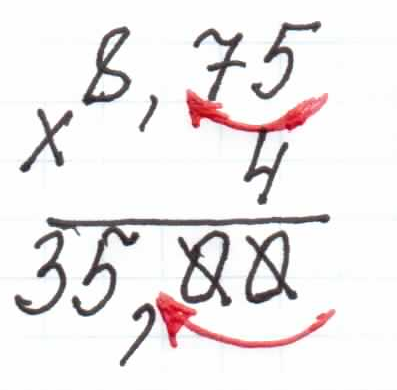 8,75
× 4
35,00